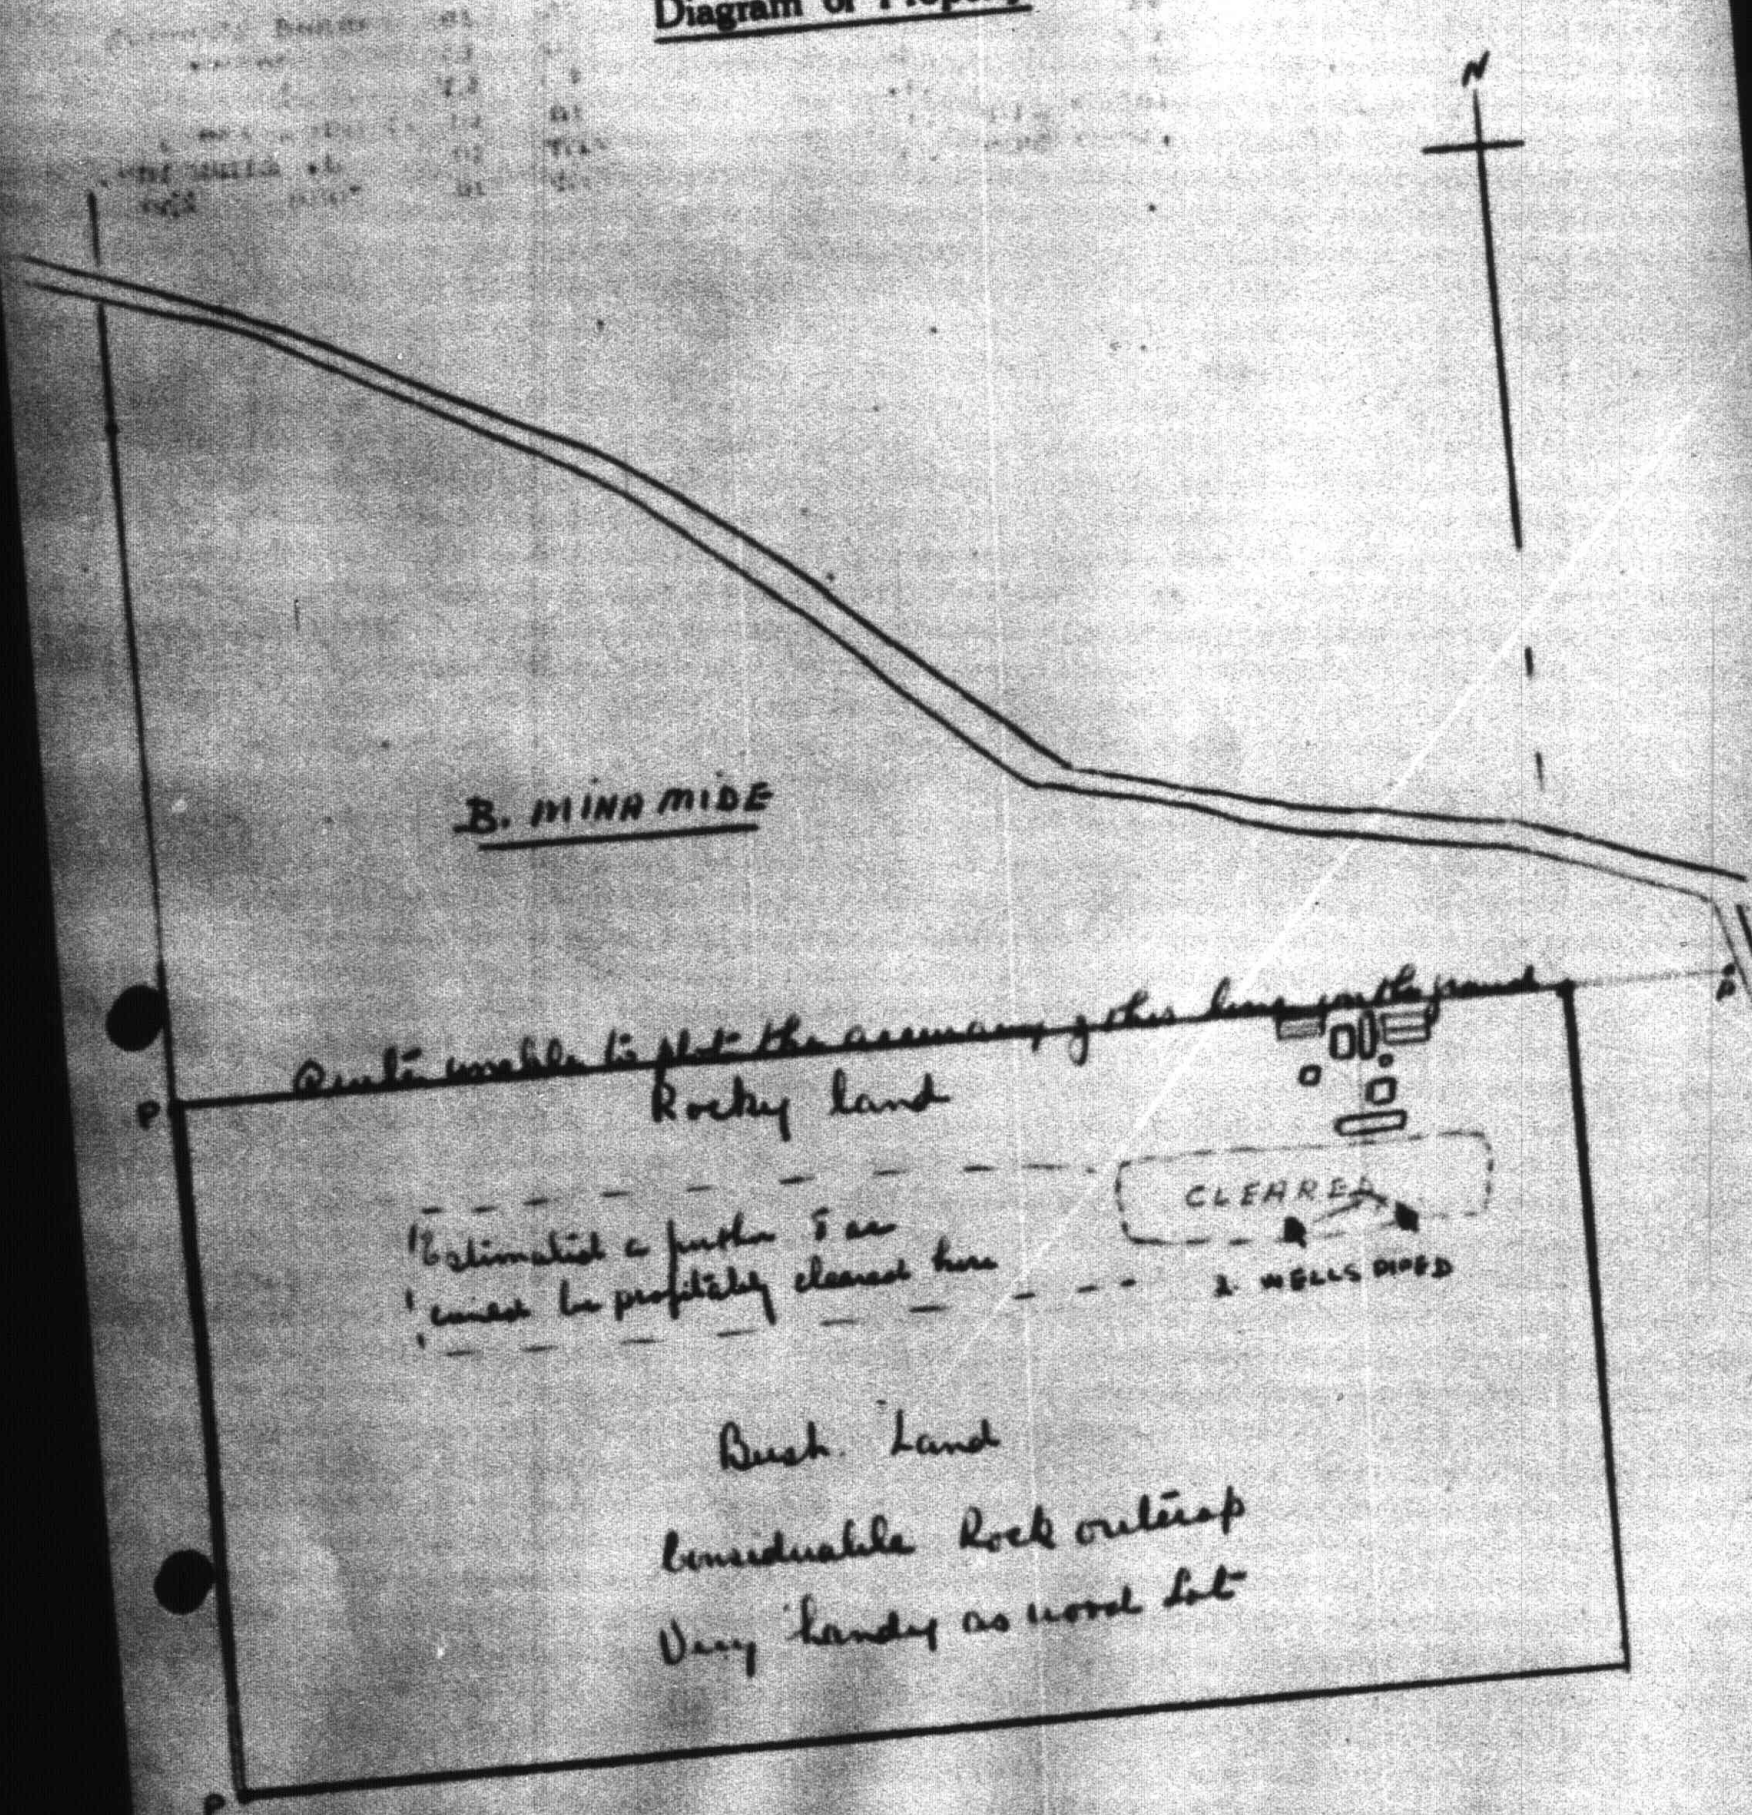 Diagram of Property
N
B. MINAMIDE
Quite unable to plot the accuracy of this line on the ground
P
P
Rocky land
CLEARED
Estimated a further 5 ac
could be profitably cleared here
2. WELLS PIPED
Bush Land
Considerable Rock outcrop
Very handy as wood Lot
P